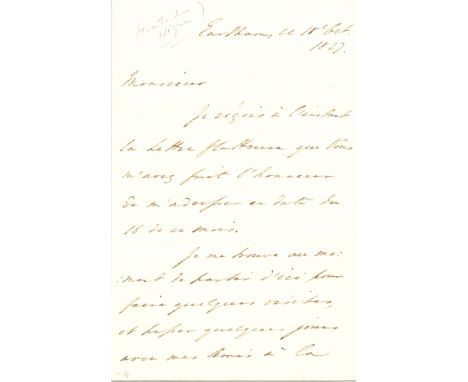 Eartham, ce 18e Oct.
1827.
Monsieur
Je reçois à l'instant
la lettre flatteuse que Vous
m'avez fait l'honneur
de m'adresser en date du
16 de ce mois.
Je me trouve au mo-
ment de partir d'ici pour
faire quelques visites,
et passer quelques jours
avec mes Amis à la